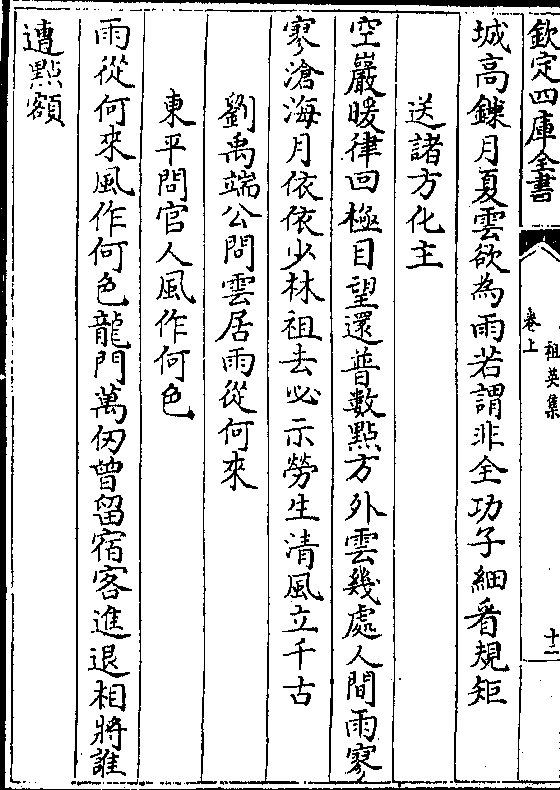 欽定四庫全書
祖英集
卷上
十二
城高鍊月夏雲欲為雨若謂非全功子細看規矩
送諸方化主
空巖暖律回極目望還普數點方外雲幾處人間雨寥
寥滄海月依依少林祖去必示勞生清風立千古
劉禹端公問雲居雨從何來
東平問官人風作何色
雨從何來風作何色龍門萬仞曾留宿客進退相將誰
遭點額